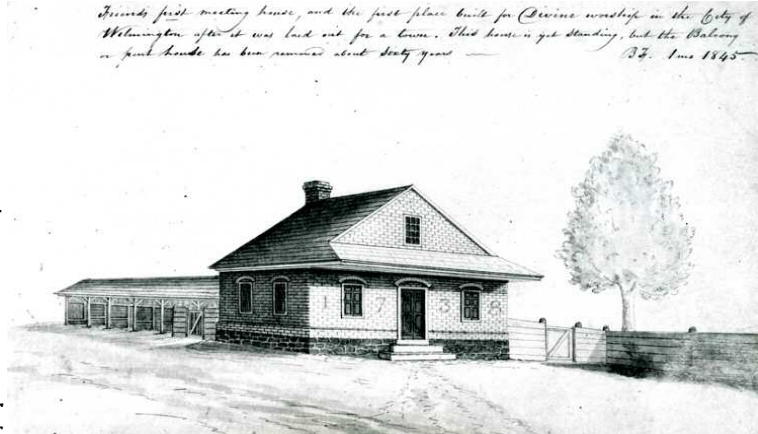 Friends first meeting house, and the first place built for Divine worship in the City of
Wilmington after it was laid out for a town. This house is yet standing, but the Balcony
or pent house has been removed about Sixty years —
BF. 1mo 1845.
1 7 3 8